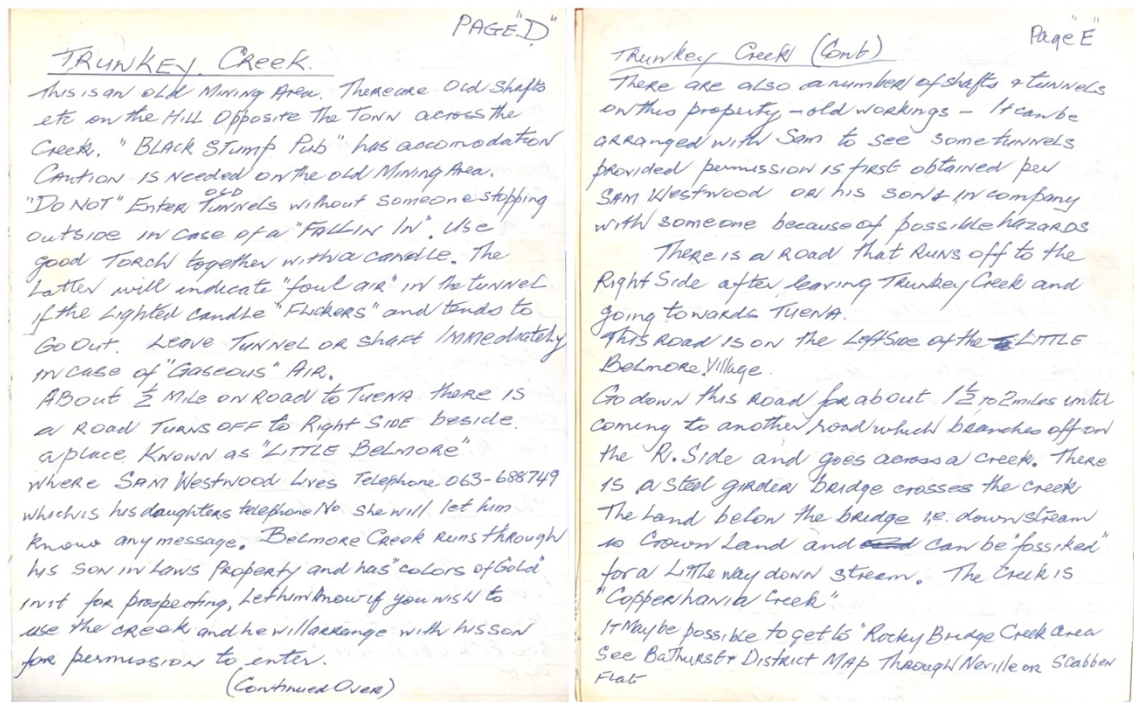 PAGE "D"
TRUNKEY CREEK.
This is an old Mining Area. There are old shafts
etc on the Hill opposite the Town across the
Creek. "BLACK STUMP PUB" has accomodation
CAUTION is needed on the old Mining Area.
"DO NOT" Enter OLD Tunnels without someone stopping
outside in case of a "FALLIN IN". Use
good TORCH together with a candle. The
Latter will indicate "foul air" in the tunnel
if the Lighted candle "Flickers" and tends to
Go Out. LEAVE TUNNEL OR SHAFT IMMEDIATELY
in case of "GASEOUS" AIR.
About ½ Mile on Road to TUENA there is
a ROAD TURNS OFF to RIGHT SIDE beside
a place KNOWN as "LITTLE BELMORE"
where SAM WESTWOOD Lives Telephone 063-688749
which is his daughters telephone No. she will let him
know any message. BELMORE CREEK RUNS through
his SON IN LAWS Property and has "colors of Gold"
in it for prospecting, Let him know if you wish to
use the creek and he will arrange with his son
for permission to enter.
(Continued Over)
Page "E"
Trunkey Creek (Cont)
There are also a number of shafts & tunnels
on this property - old workings - It can be
arranged with Sam to see some tunnels
provided permission is first obtained per
SAM WESTWOOD OR his SON & in company
with someone because of possible hazards
There is a ROAD that RUNS off to the
Right Side after leaving Trunkey Creek and
going towards TUENA.
This ROAD IS ON the LEFT SIDE of the LITTLE
Belmore Village.
Go down this ROAD for about 1½ to 2 miles until
coming to another road which branches off on
the R. Side and goes across a creek. There
is a steel girder bridge crosses the creek
The Land below the bridge i.e. down stream
is Crown Land and can be "fossiked"
for a Little way down stream. The Creek is
"Copperhania Creek"
It May be possible to get to "Rocky Bridge Creek area
See Bathurst & District Map Through Neville or Scabben
Flat